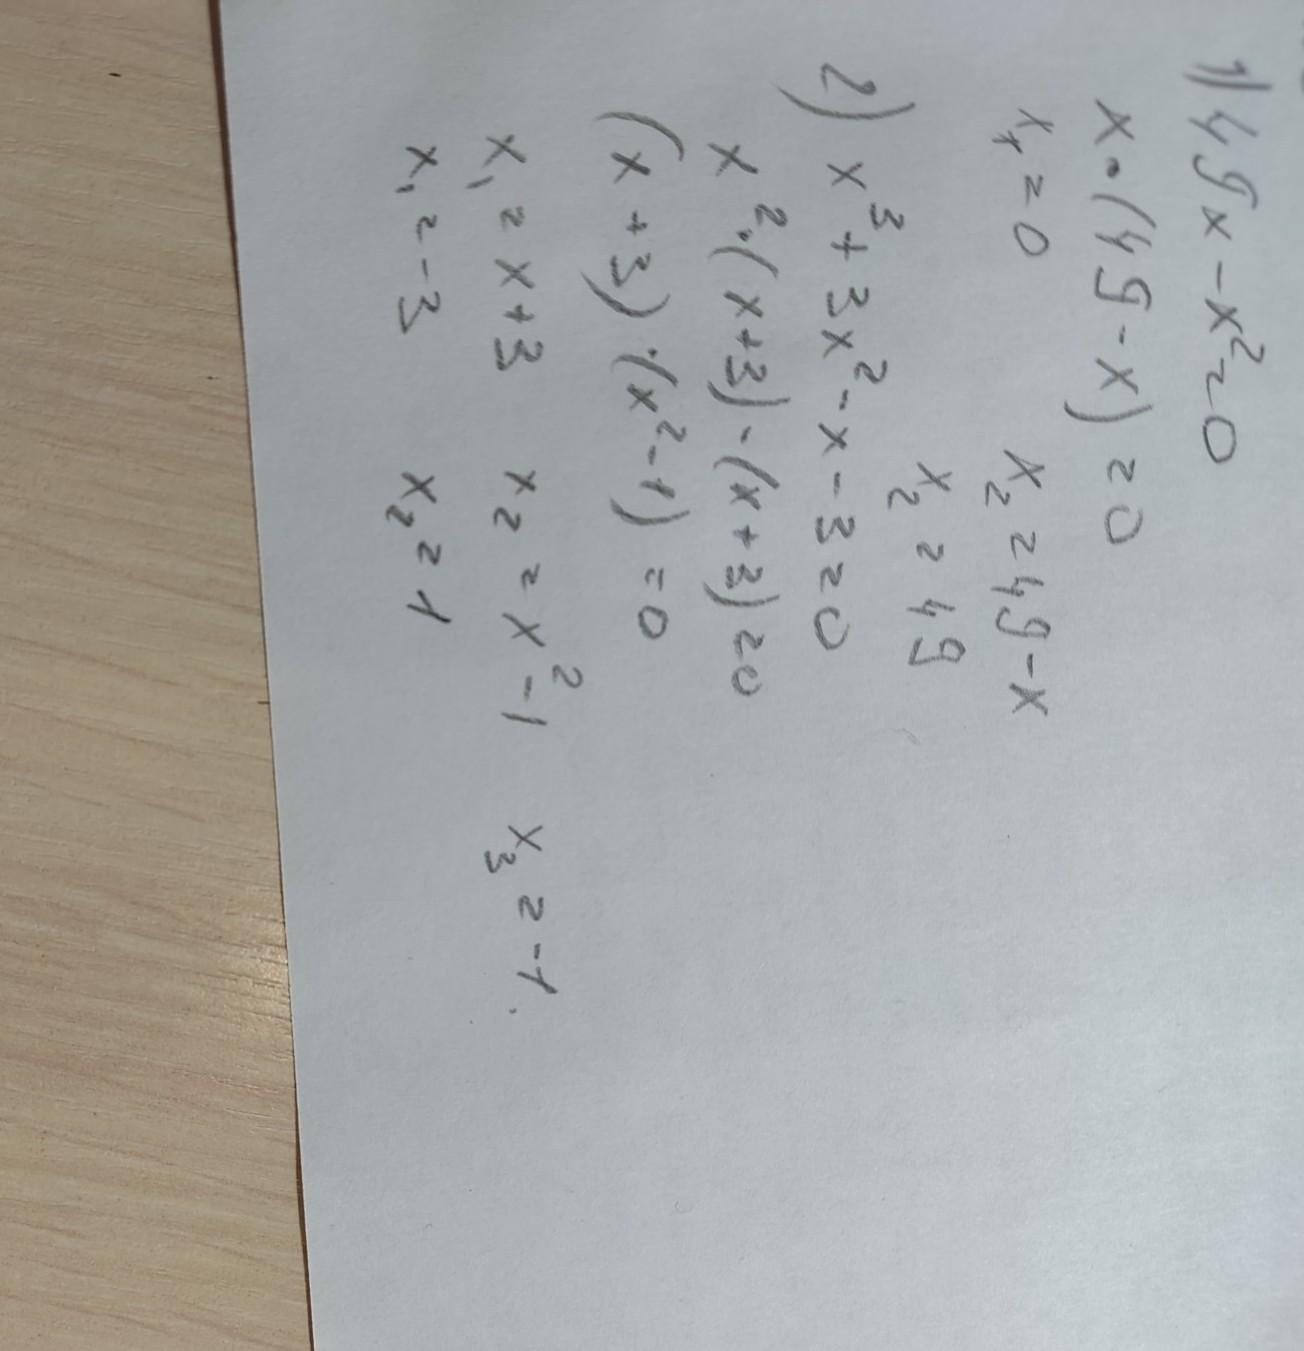 1) 49x - x² = 0
x • (49 - x) = 0
x₁ = 0 x₂ = 49 - x
x₂ = 49
2) x³ + 3x² - x - 3 = 0
x² · (x + 3) - (x + 3) = 0
(x + 3) · (x² - 1) = 0
x₁ = x + 3 x₂ = x² - 1 x₃ = -1.
x₁ = -3 x₂ = 1